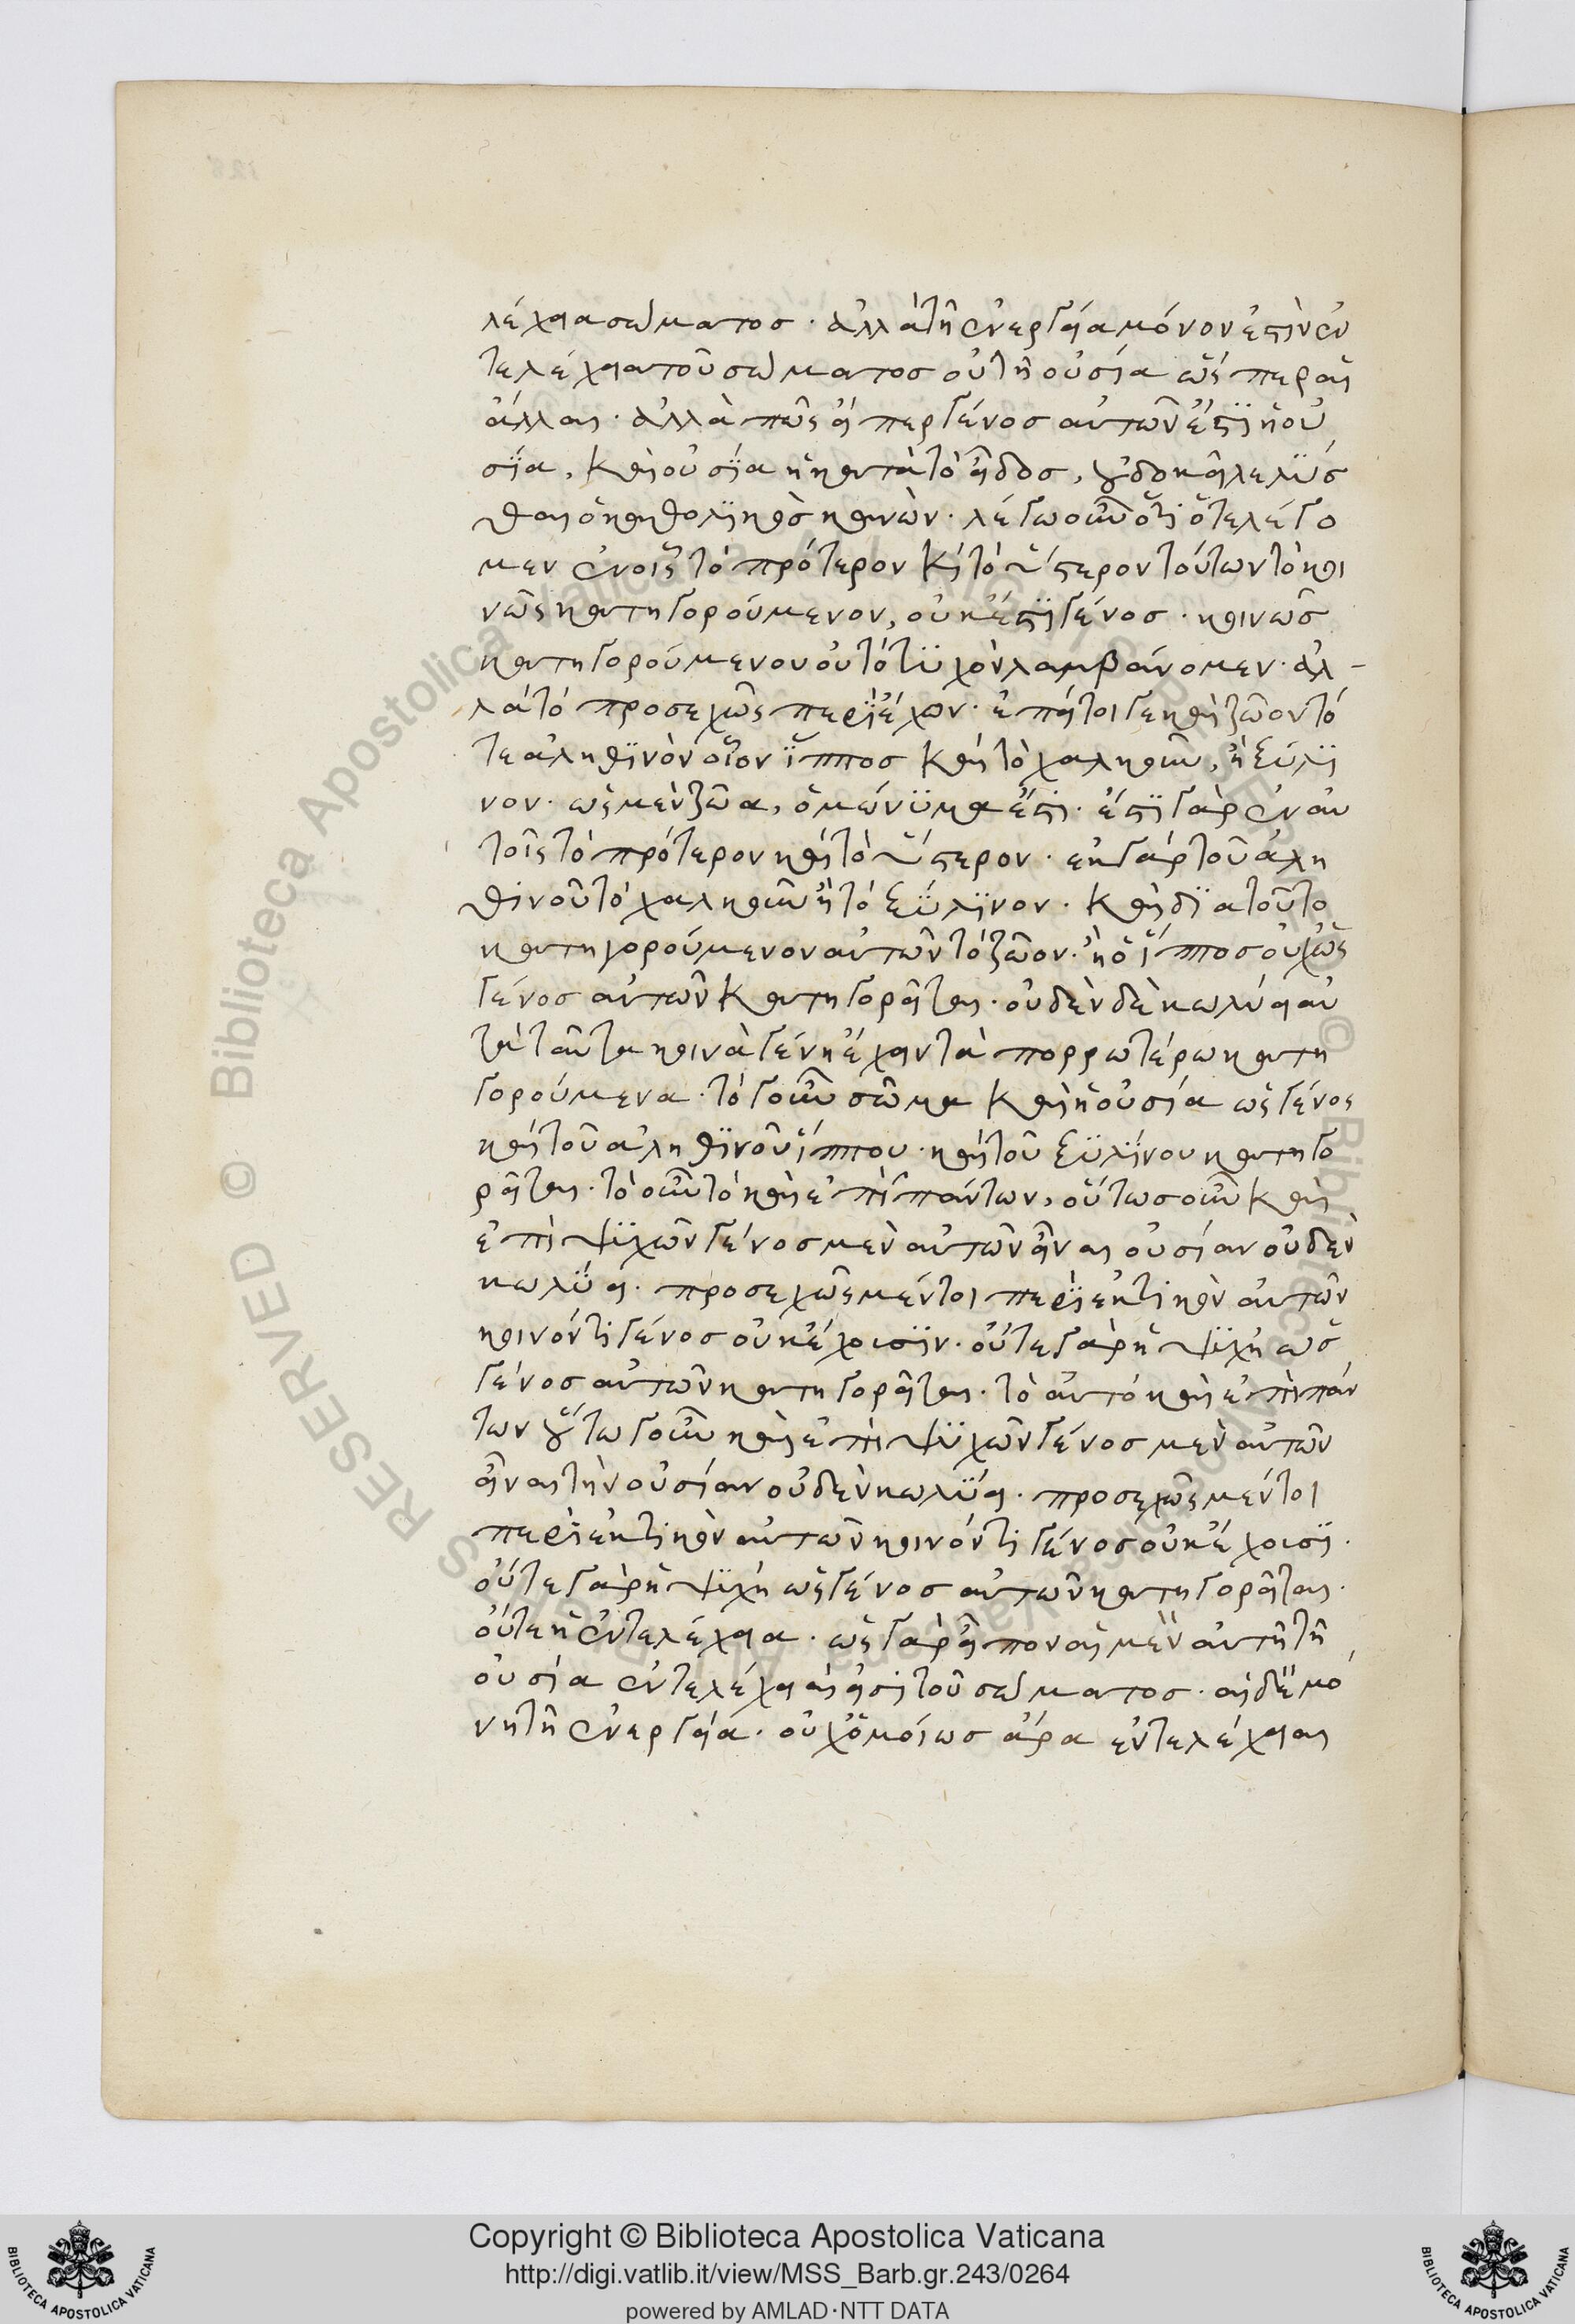 λέχεια σώματος· ἀλλὰ τῆ ἐνεργεία μόνον ἐστὶν ἐν
τελέχεια τοῦ σώματος οὐ τῆ οὐσία ὥσπερ αἱ
ἄλλαι· ἀλλὰ πῶς εἴπερ γένος αὐτῶν ἐστὶ ἡ οὐ
σία, καὶ οὐσία ἡ κατὰ τὸ εἶδος, οὐ δοκεῖ λελύσ
θαι ὁ καθολικὸς κανὼν· λέγω οὖν ὅτι ὅτε λέγο
μεν ἐν οἷς τὸ πρότερον καὶ τὸ ὕστερον τούτων τὸ κοι
νῶς κατηγορούμενον, οὐκ ἔστι γένος· κοινῶς
κατηγορούμενον οὐ τὸ τυχὸν λαμβάνομεν· ἀλ-
λὰ τὸ προσεχῶς περιέχον· ἐπεί τοι γε καὶ ζῶον τό
τε ἀληθινὸν οἷον ἵππος καὶ τὸ χαλκοῦν, ἢ ξύλι
νον· ὡς μὲν ζῶα, ὁμώνυμα ἐστι· ἔστι γὰρ ἐν αὐ
τοῖς τὸ πρότερον καὶ τὸ ὕστερον· ἐκ γὰρ τοῦ ἀλη
θινοῦ τὸ χαλκοῦν ἢ τὸ ξύλινον· καὶ διατοῦτο
κατηγορούμενον αὐτῶν τὸ ζῶον· ἢ ὁ ἵππος οὐχ ὡς
γένος αὐτῶν κατηγορεῖται· οὐδὲν δὲ κωλύει αὐ
τὰ ταῦτα κοινὰ γένη ἔχειν τὰ πορρωτέρω κατη
γορούμενα· τὸ γοῦν σῶμα καὶ ἡ οὐσία ὡς γένος
καὶ τοῦ ἀληθινοῦ ἵππου· καὶ τοῦ ξυλίνου κατηγο
ρεῖται· τὸ οὖν τὸ καὶ ἐπὶ πάντων, οὕτως οὖν καὶ
ἐπὶ ψυχῶν γένος μὲν αὐτῶν εἶναι οὐσίαν οὐδὲν
κωλύει· προσεχῶς μέντοι περιεκτικὸν αὐτῶν
κοινόν τι γένος οὐκ ἔχουσιν· οὔτε γὰρ ἡ ψυχὴ ὡς
γένος αὐτῶν κατηγορεῖται· τὸ αὐτὸ καὶ ἐπὶ πάν
των οὕτω γοῦν καὶ ἐπὶ ψυχῶν γένος μὲν αὐτῶν
εἶναι τὴν οὐσίαν οὐδὲν κωλύει· προσεχῶς μέντοι
περιεκτικὸν αὐτῶν κοινόν τι γένος οὐκ ἔχουσι·
οὔτε γὰρ ἡ ψυχὴ ὡς γένος αὐτῶν κατηγορεῖται·
οὔτε ἡ ἐντελέχεια· ὡς γὰρ εἶπον αἱ μὲν αὐτῆ τῆ
οὐσία ἐντελέχειαί εἰσι τοῦ σώματος· αἱ δὲ μό
νη τῆ ἐνεργεία· οὐχ ὁμοίως ἄρα ἐντελέχειαι
Copyright © Biblioteca Apostolica Vaticana
http://digi.vatlib.it/view/MSS_Barb.gr.243/0264
powered by AMLAD·NTT DATA